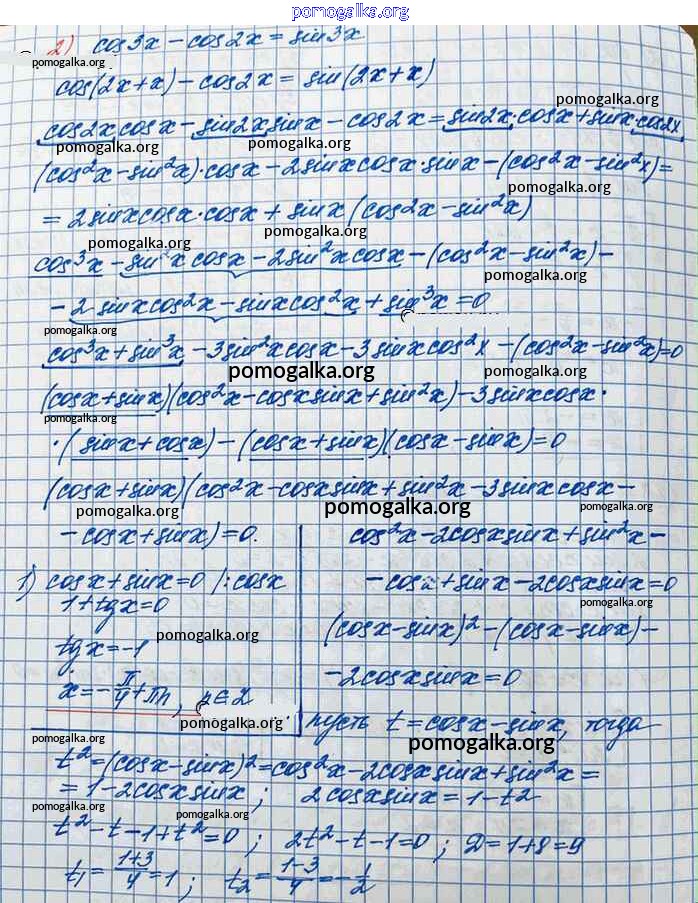 pomogalka.org
2) cos3x - cos2x = sin3x
pomogalka.org
cos(2x+x) - cos2x = sin(2x+x)
pomogalka.org
cos2x cosx - sin2x sinx - cos2x = sin2x·cosx + sinx·cos2x
pomogalka.org pomogalka.org
(cos²x - sin²x)·cosx - 2sinxcosx·sinx - (cos²x - sin²x) =
pomogalka.org
= 2sinxcosx·cosx + sinx(cos2x - sin²x)
pomogalka.org
cos³x - sin²x cosx - 2sin²x cosx - (cos²x - sin²x) -
pomogalka.org pomogalka.org
- 2 sinxcos²x - sinxcos²x + sin³x = 0
pomogalka.org
cos³x + sin³x - 3sin²xcosx - 3sinxcos²x - (cos²x - sin²x) = 0
pomogalka.org pomogalka.org
(cosx + sinx)(cos²x - cosxsinx + sin²x) - 3sinxcosx·
pomogalka.org
·(sinx + cosx) - (cosx + sinx)(cosx - sinx) = 0
pomogalka.org
(cosx + sinx)(cos²x - cosxsinx + sin²x - 3sinxcosx -
pomogalka.org pomogalka.org pomogalka.org
- cosx + sinx) = 0.
1) cosx + sinx = 0 /:cosx
1 + tgx = 0
pomogalka.org
tgx = -1
x = -π/4 + πn, n∈Z
pomogalka.org
cos²x - 2cosxsinx + sin²x -
- cosx + sinx - 2cosxsinx = 0
pomogalka.org
(cosx - sinx)² - (cosx - sinx) -
pomogalka.org
- 2cosxsinx = 0
пусть t = cosx - sinx, тогда
pomogalka.org pomogalka.org
t² = (cosx - sinx)² = cos²x - 2cosxsinx + sin²x =
= 1 - 2cosxsinx ; 2cosxsinx = 1 - t²
pomogalka.org pomogalka.org
t² - t - 1 + t² = 0 ; 2t² - t - 1 = 0 ; D = 1+8 = 9
pomogalka.org
t₁ = (1+3)/4 = 1 ; t₂ = (1-3)/4 = -1/2